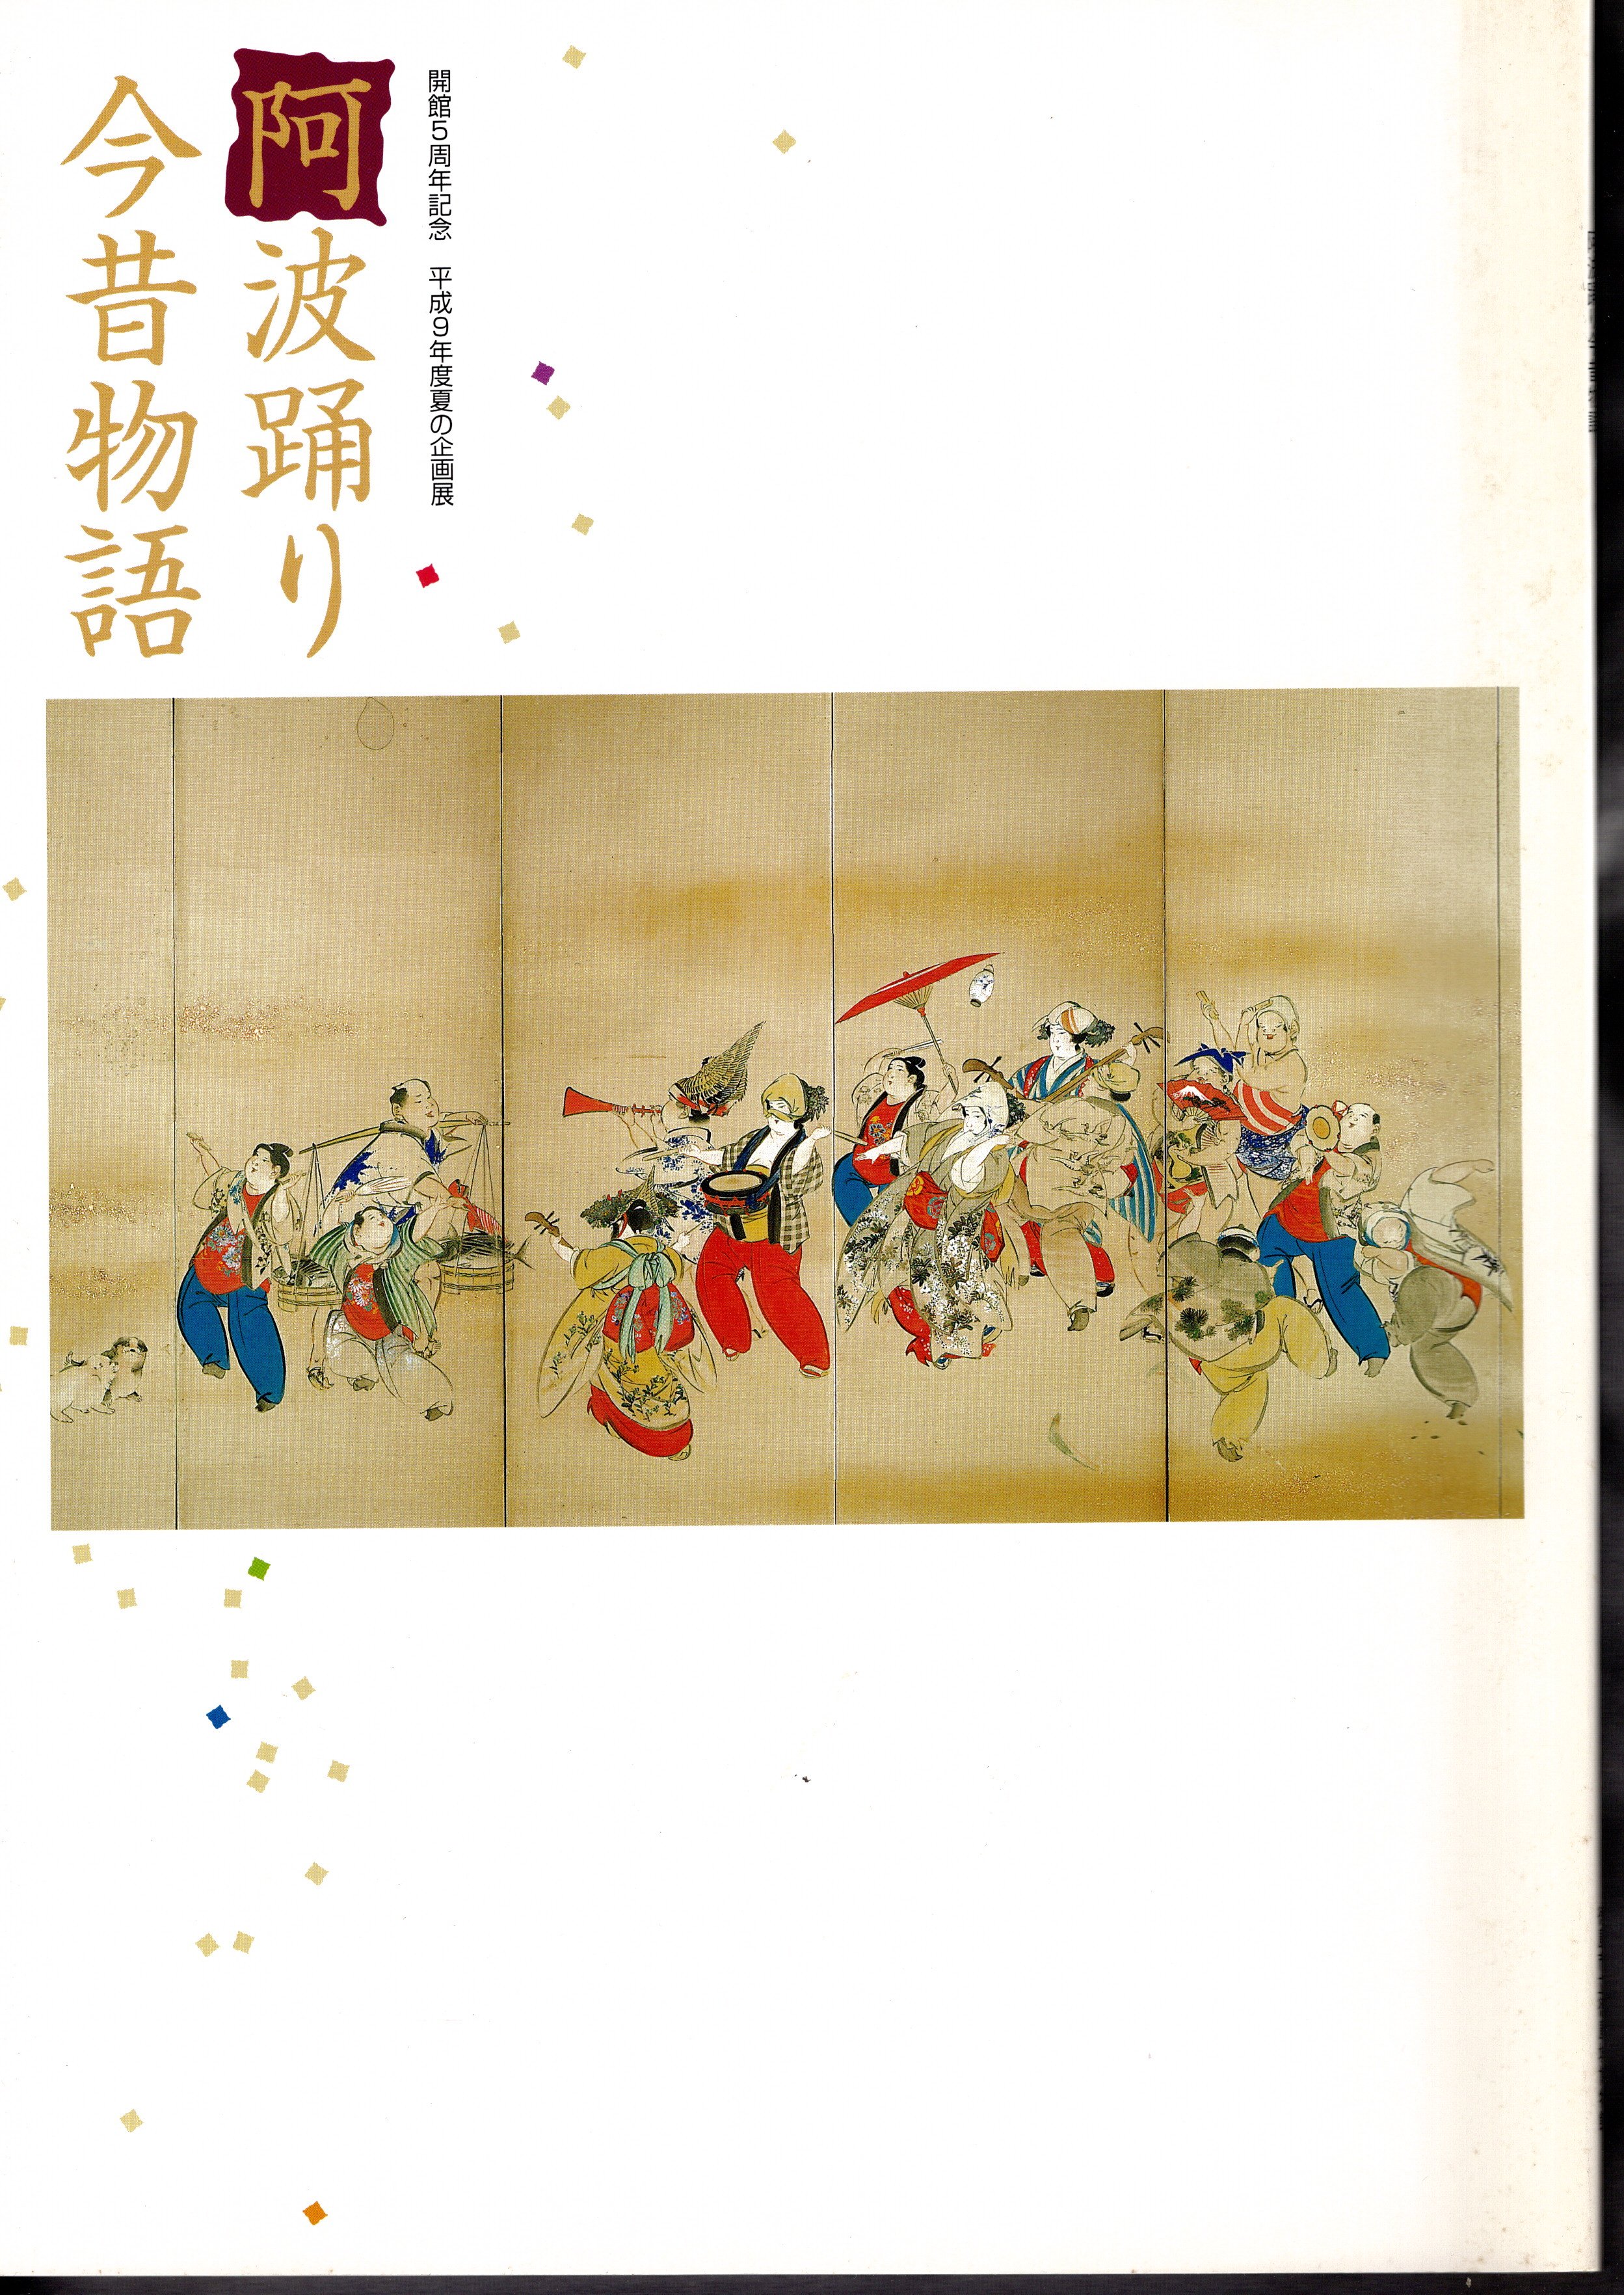 開館5周年記念　平成9年度夏の企画展
阿波踊り
今昔物語